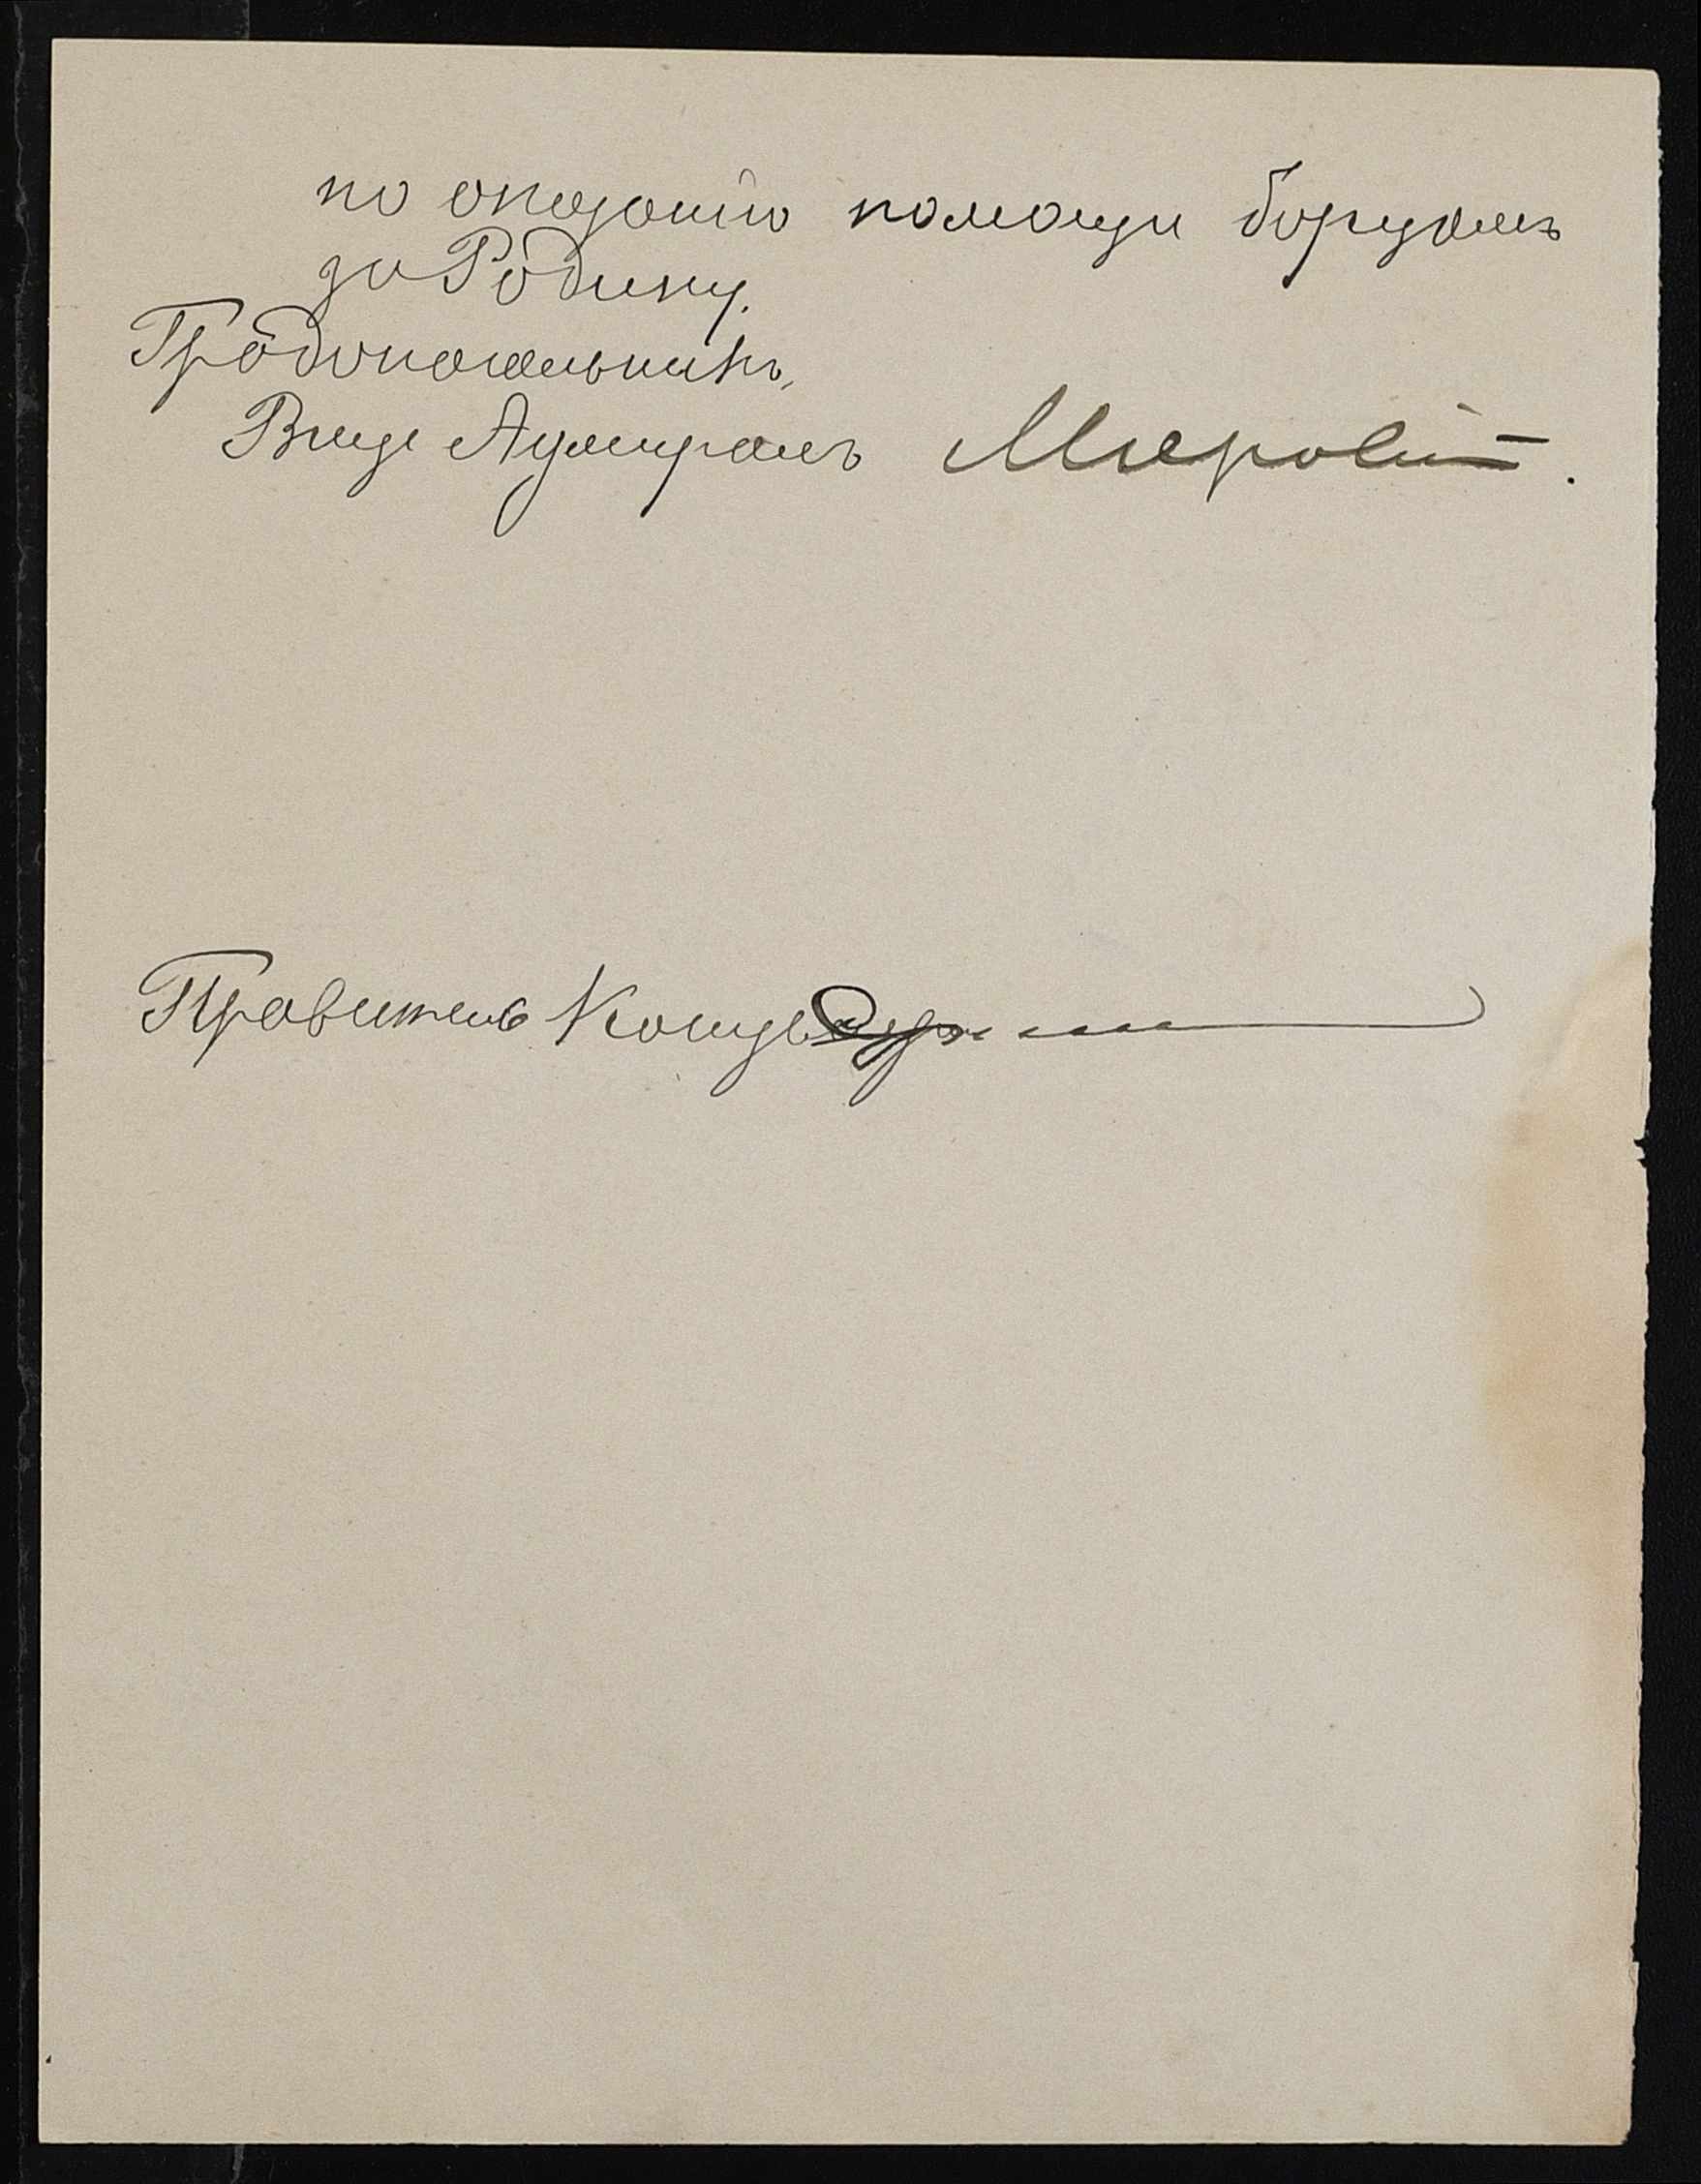 по оказанію помощи борцамъ
за Родину.
Градоначальникъ,
Вице Адмиралъ
Правитель Канцеляріи